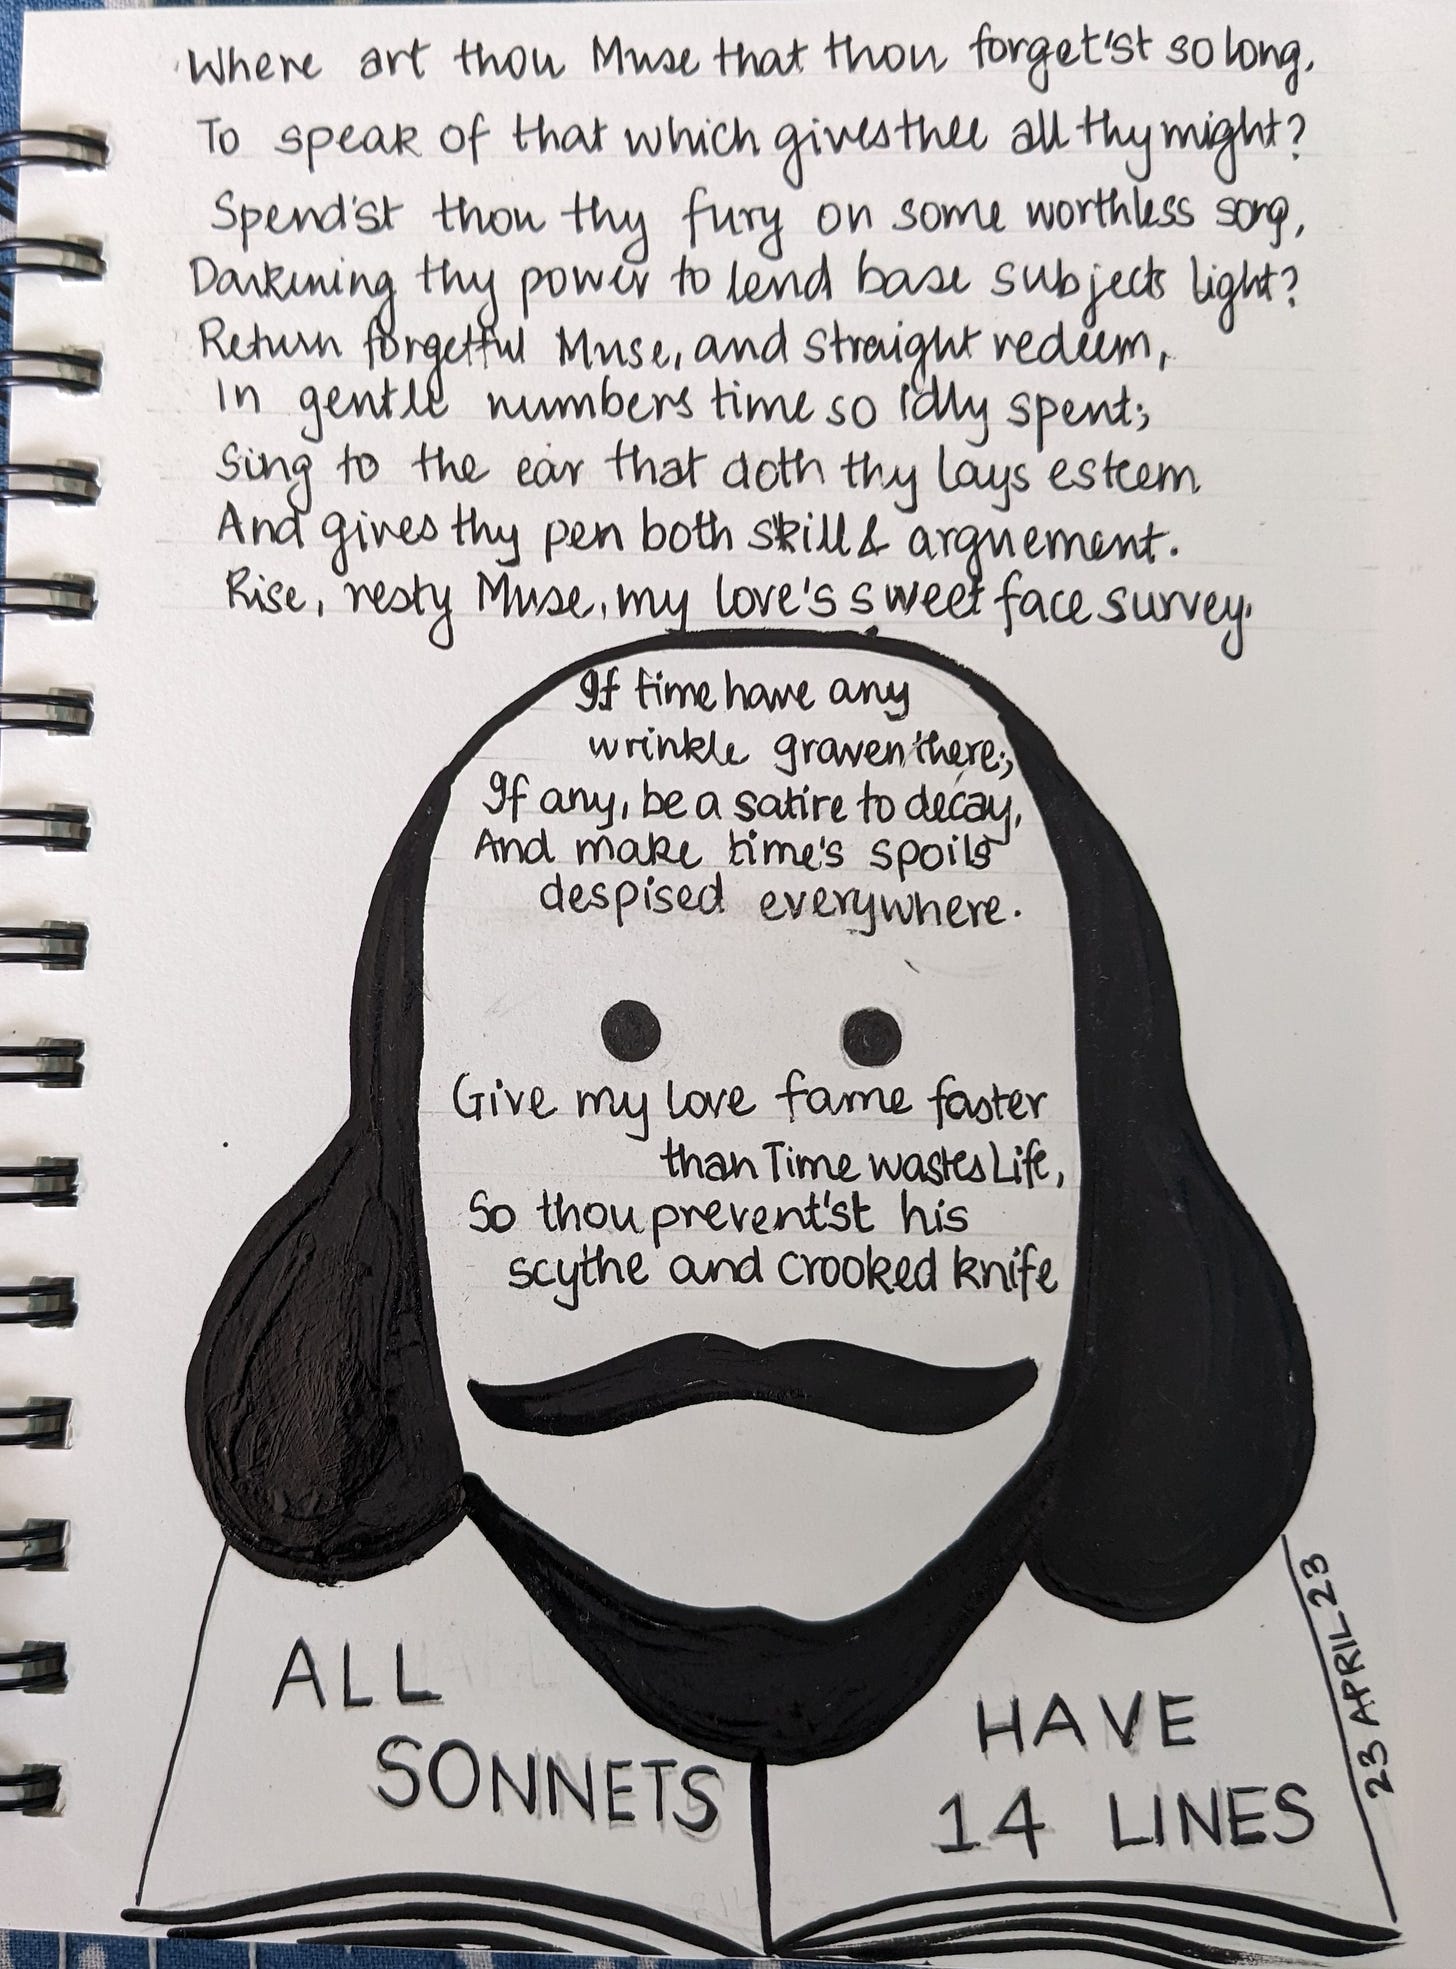 Where art thou Muse that thou forget'st so long,
To speak of that which gives thee all thy might?
Spend'st thou thy fury on some worthless song,
Darkening thy power to lend base subjects light?
Return forgetful Muse, and straight redeem,
In gentle numbers time so idly spent;
Sing to the ear that doth thy lays esteem
And gives thy pen both skill & arguement.
Rise, resty Muse, my love's sweet face survey.
If time have any
wrinkle graven there;
If any, be a satire to decay,
And make time's spoils
despised everywhere.
Give my love fame faster
than Time wastes Life,
So thou prevent'st his
scythe and crooked knife
ALL
SONNETS
HAVE
14 LINES
23 APRIL 23